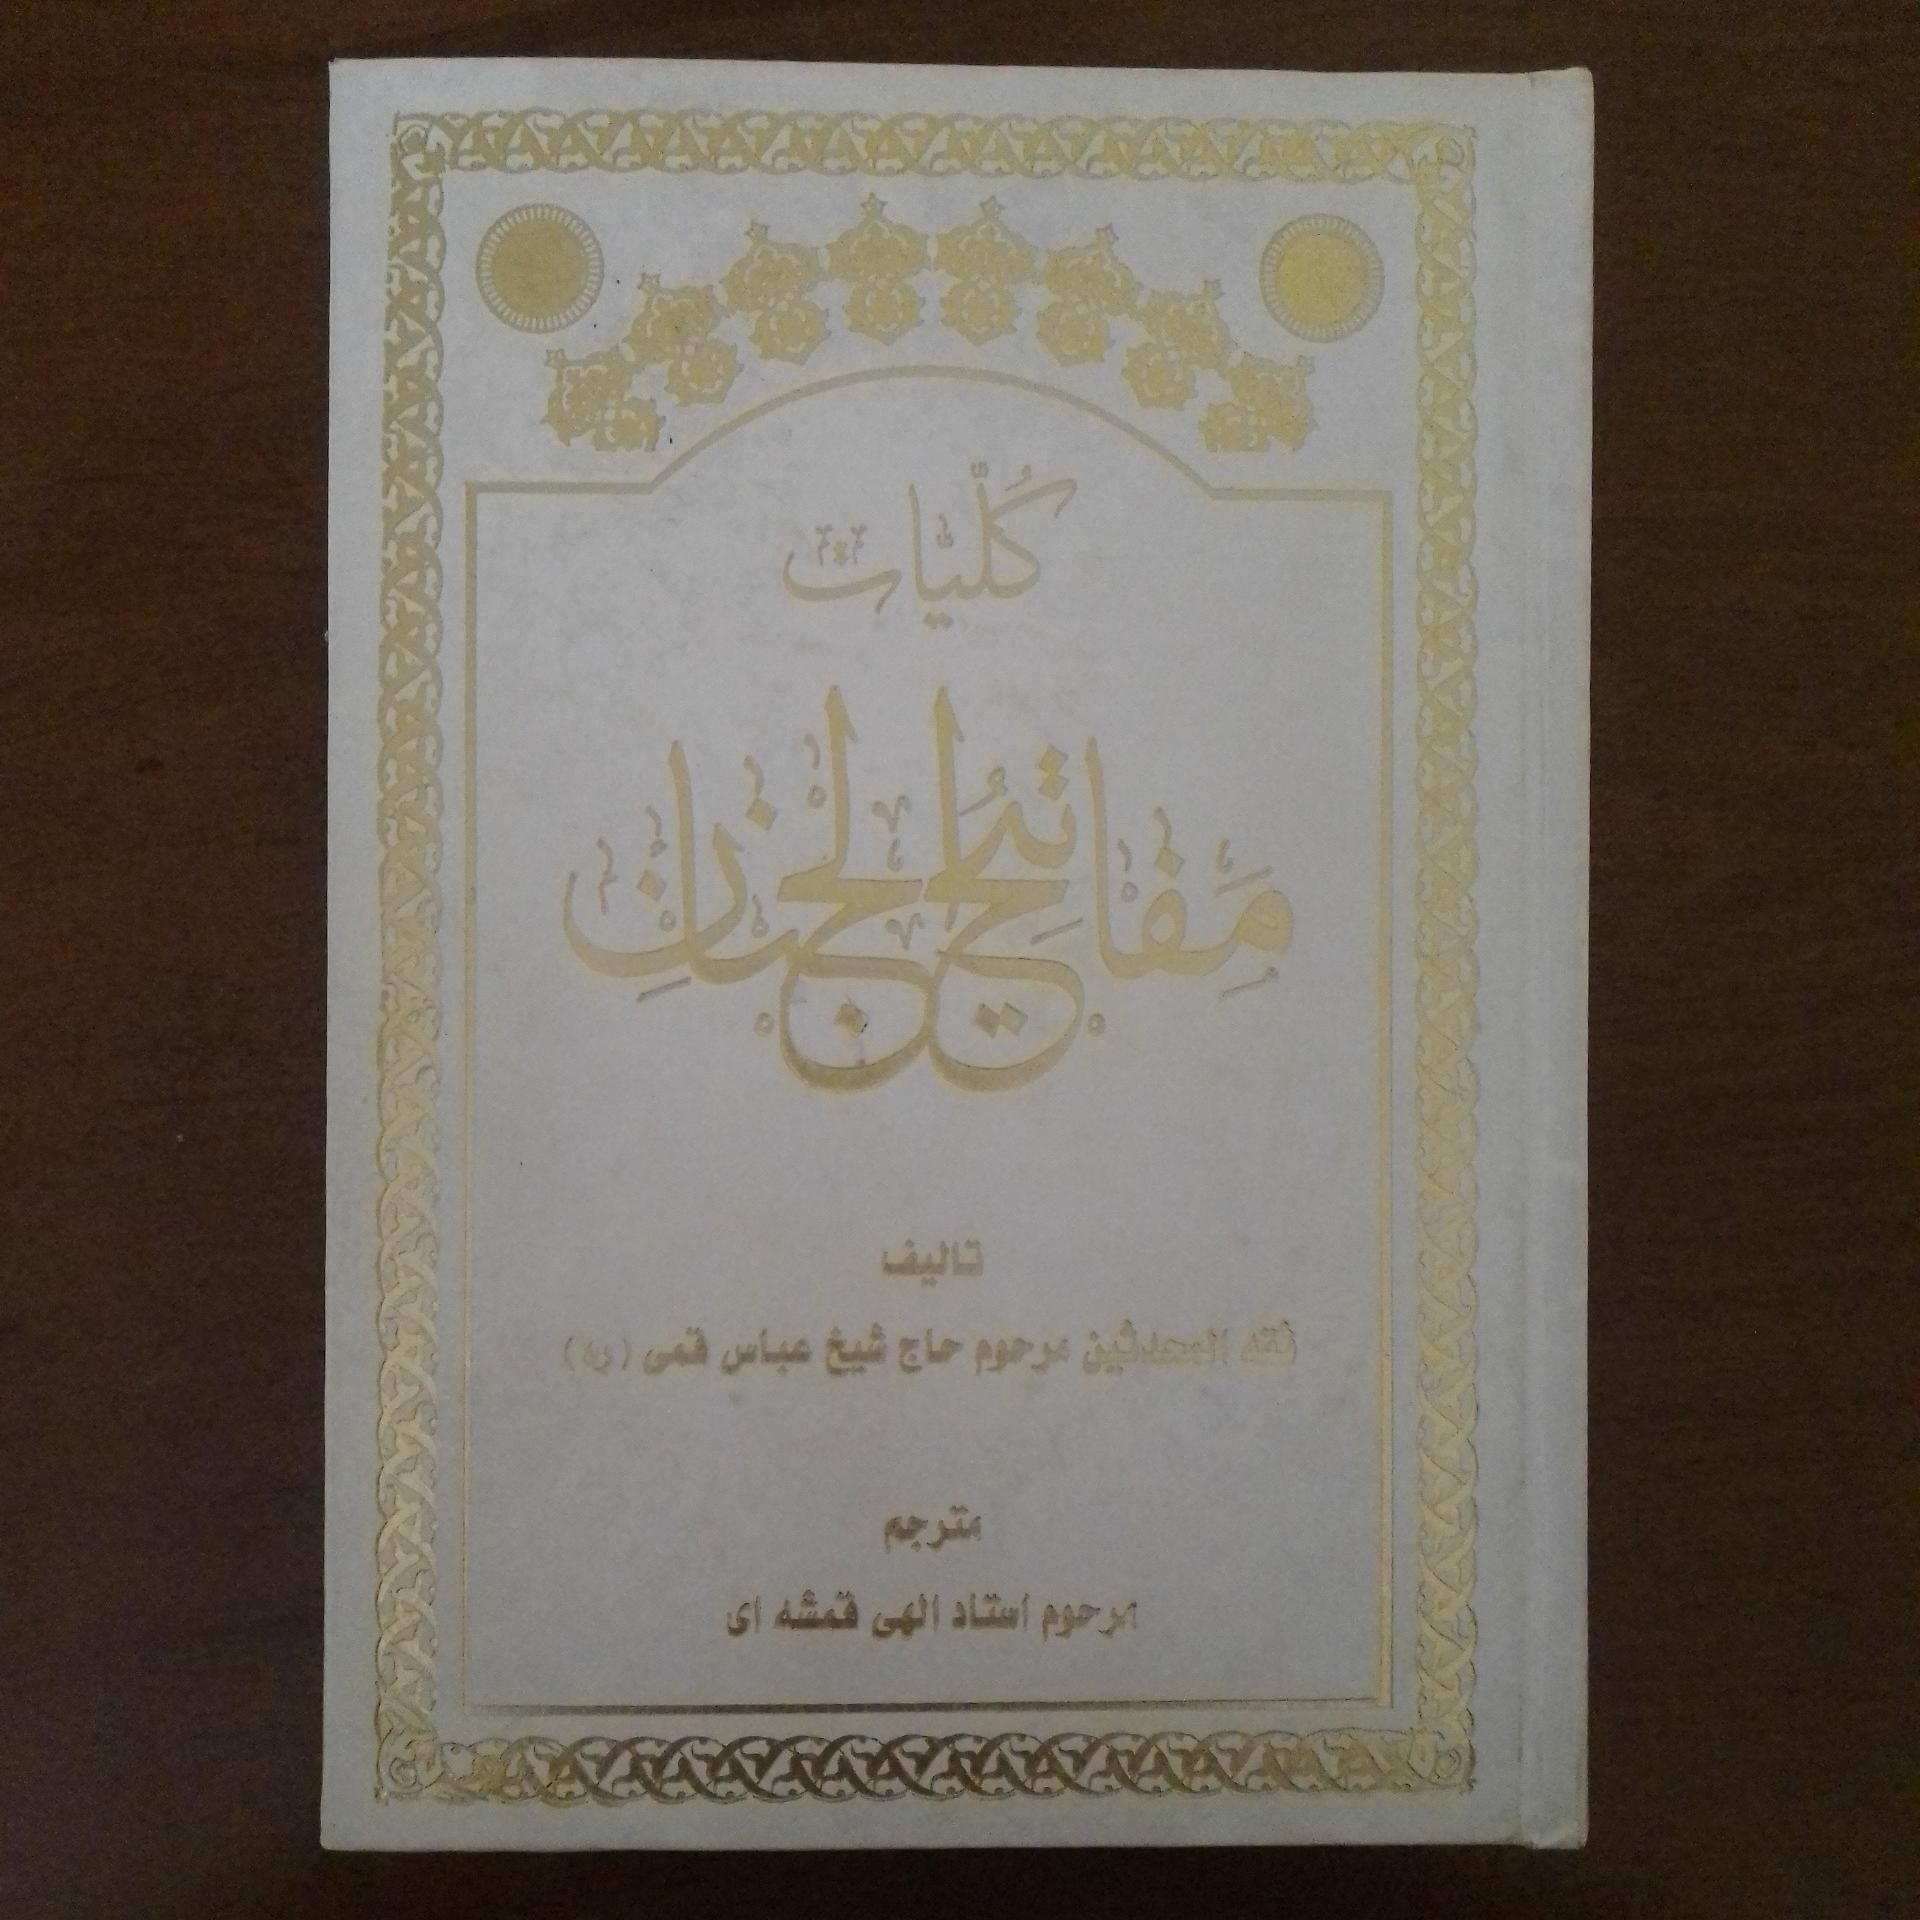 كُلّیّات
مَفَاتیحُ الْجَنَانِ
تالیف
ثقه المحدثین مرحوم حاج شیخ عباس قمی (ره)
مترجم
مرحوم استاد الهی قمشه ای